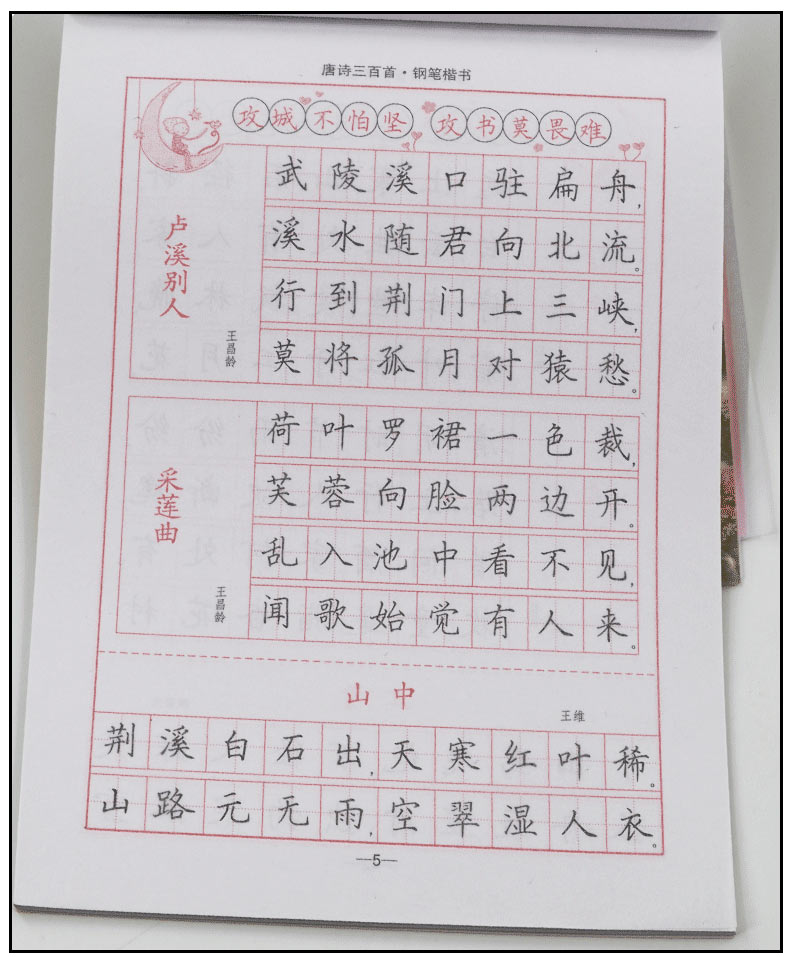 唐诗三百首·钢笔楷书
攻城不怕坚 攻书莫畏难
卢溪别人
王昌龄
武陵溪口驻扁舟，
溪水随君向北流。
行到荆门上三峡，
莫将孤月对猿愁。
采莲曲
王昌龄
荷叶罗裙一色裁，
芙蓉向脸两边开。
乱入池中看不见，
闻歌始觉有人来。
山中
王维
荆溪白石出，天寒红叶稀。
山路元无雨，空翠湿人衣。
—5—